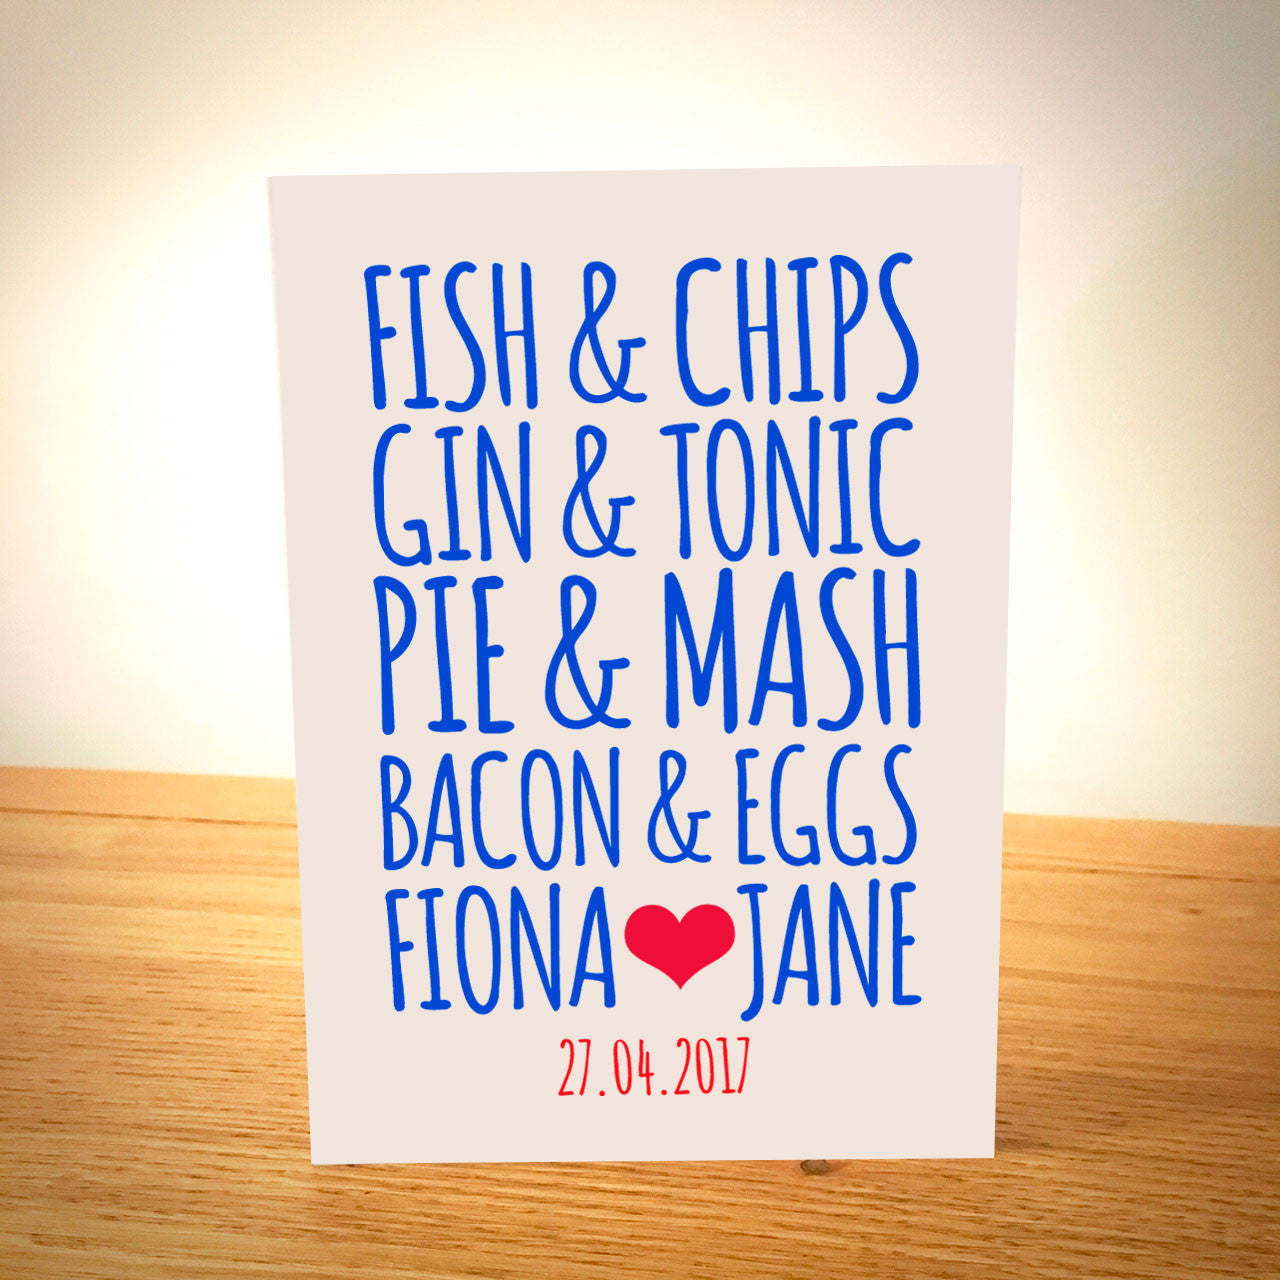 FISH & CHIPS
GIN & TONIC
PIE & MASH
BACON & EGGS
FIONA ❤ JANE
27.04.2017